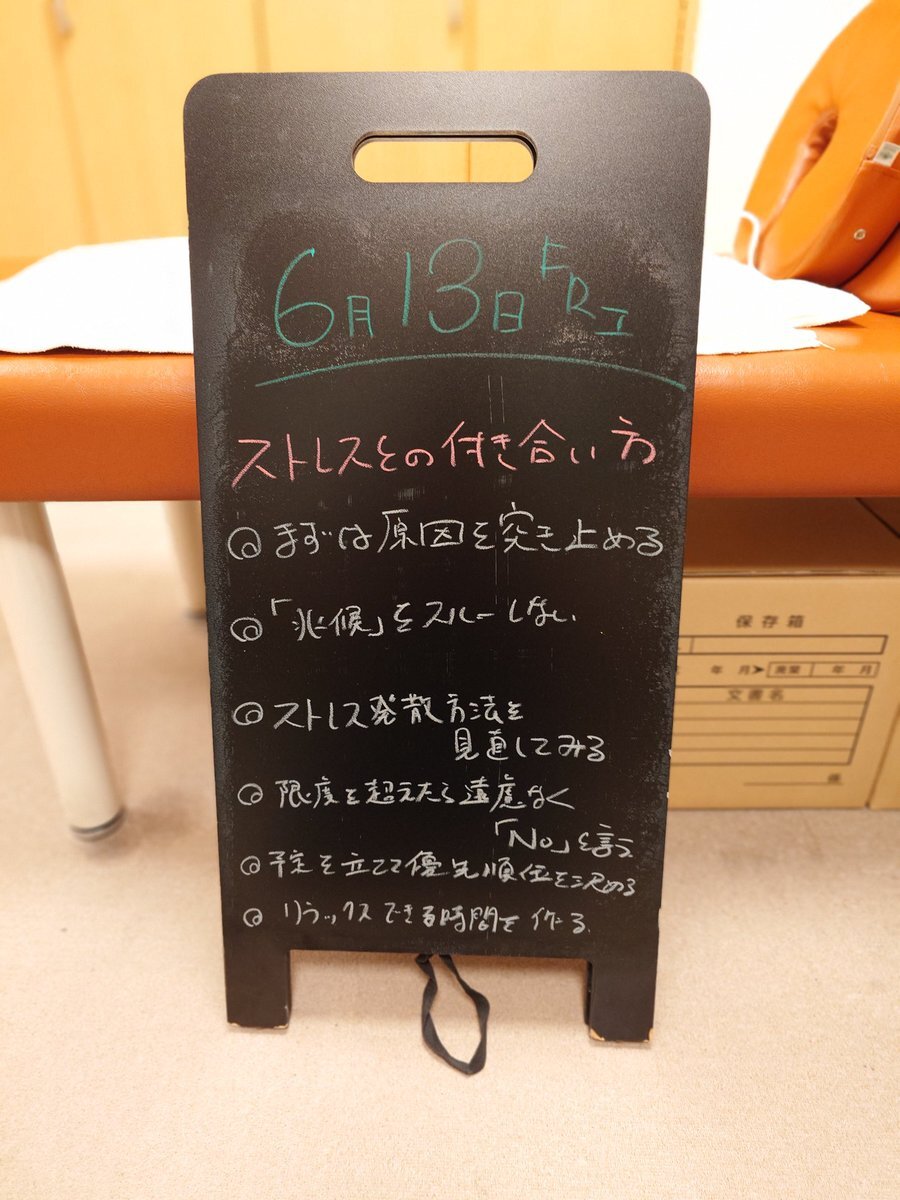 6月13日 FRI
ストレスとの付き合い方
◎まずは原因を突き止める
◎「兆候」をスルーしない
◎ストレス発散方法を
見直してみる
◎限度を超えたら遠慮なく
「No」を言う
◎予定を立てて優先順位を決める
◎リラックスできる時間を作る
保存箱
年 月➤廃棄 年 月
文書名